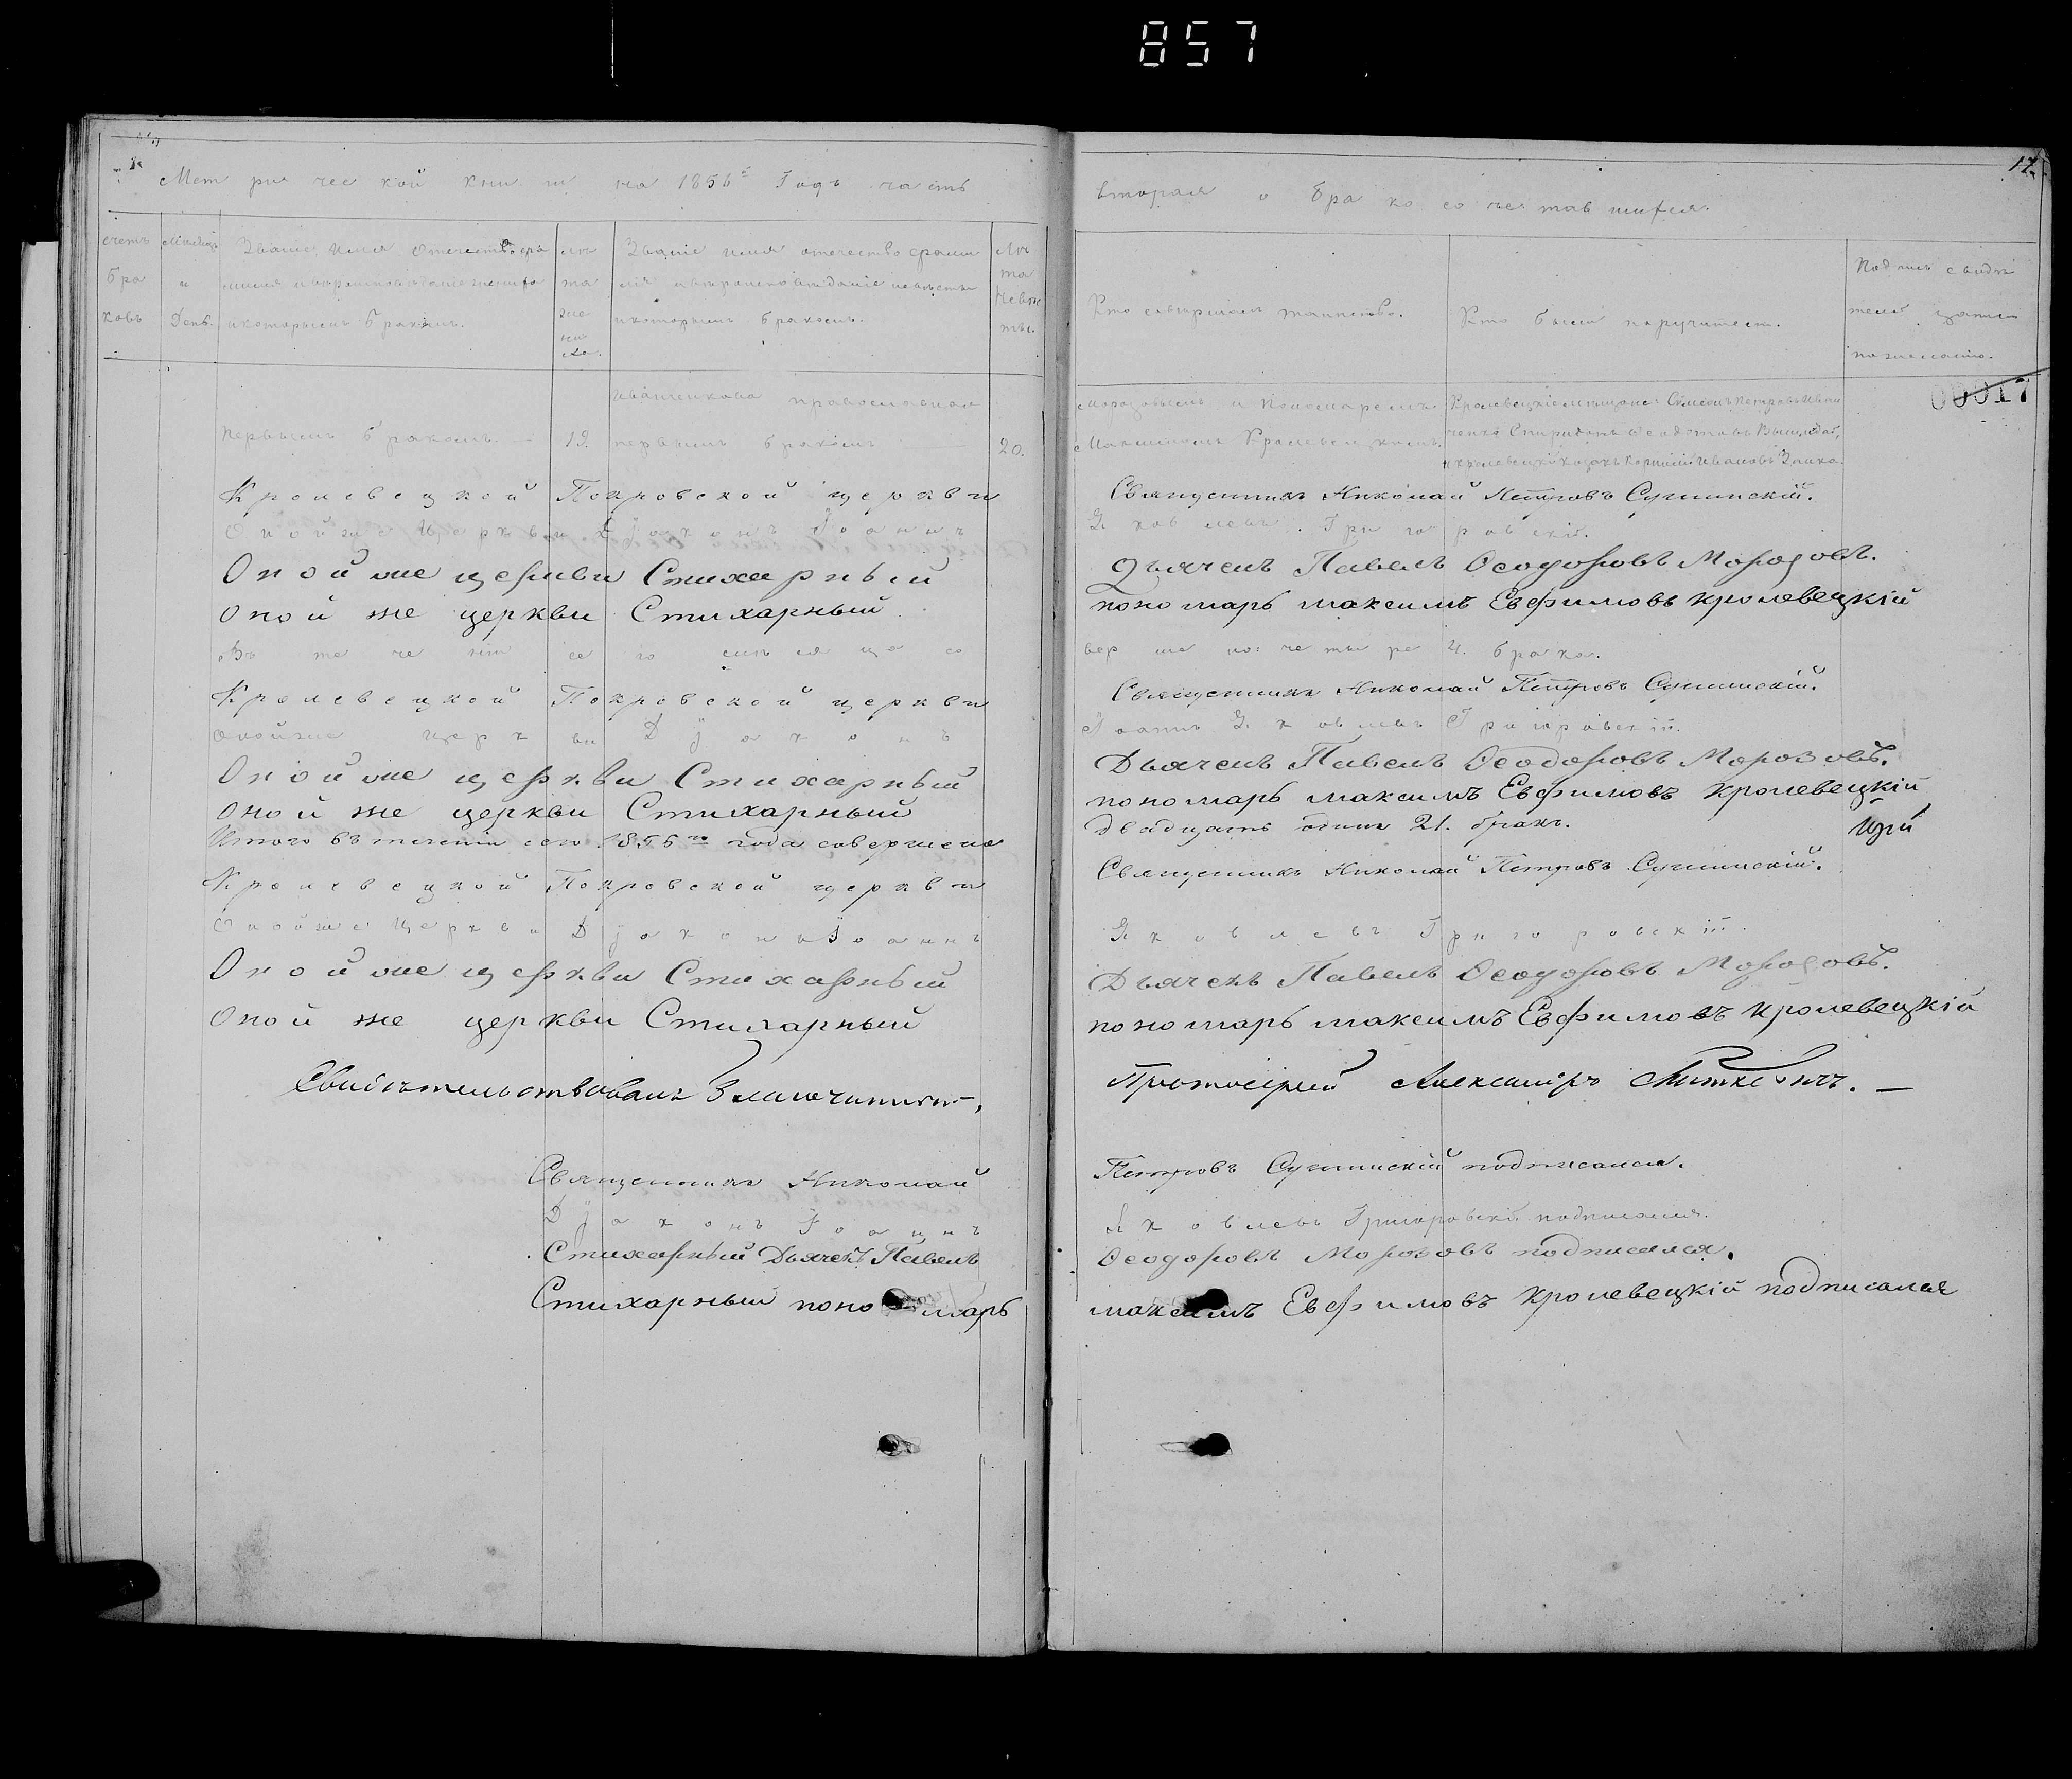 857
Метрической книги на 1856й Годъ часть
вторая о бракосочетавшихся.
17.
счетъ браковъ
Мѣсяцъ и День.
Званіе, имя отечество фамилія и вѣроисповѣданіе жениха и которымъ бракомъ.
лѣта жениха.
Званіе имя отечество фамилія и вѣроисповѣданіе невѣсты и которымъ бракомъ.
Лѣта Невѣсты.
Кто совершалъ таинство.
Кто были поручители.
Подпись свидѣтелей записи по желанію.
00017
Иванченкова православная
первымъ бракомъ. 19. первымъ бракомъ 20.
Морозовымъ и Пономаремъ
Максимомъ Кролевецкимъ.
Кролевецкіе мѣщане: Симеонъ Петровъ Иванченко Спиридонъ Феодотовъ
и кролевецкій козакъ Корнилій Ивановъ
Кролевецкой Покровской церкви Священникъ Николай Петровъ
Оной же Церкви Діаконъ Іоаннъ Яковлевъ Григоровскій.
Оной же церкви Стихарный Дьячекъ Павелъ Ѳеодоровъ Морозовъ.
оной же церкви Стихарный пономарь максимъ Евфимовъ кролевецкій
Въ теченіи сего мѣсяца совершено: четыре 4. брака.
Кролевецкой Покровской церкви Священникъ Николай Петровъ
оной же Церкви Діаконъ Іоаннъ Яковлевъ Григоровскій.
Оной же церкви Стихарный Дьячекъ Павелъ Ѳеодоровъ Морозовъ.
оной же церкви Стихарный пономарь максимъ Евфимовъ кролевецкій
Итого въ теченіи сего 1856го года совершено двадцать одинъ 21. бракъ.
Кролевецкой Покровской церкви Священникъ Николай Петровъ
Оной же Церкви Діаконъ Іоаннъ Яковлевъ Григоровскій.
Оной же церкви Стихарный Дьячекъ Павелъ Ѳеодоровъ Морозовъ.
Оной же церкви Стихарный пономарь максимъ Евфимовъ кролевецкій
Свидѣтельствовалъ Благочинный, Протоіерей Александръ
Священникъ Николай Петровъ подписался.
Діаконъ Іоаннъ Яковлевъ Григоровскій подписался.
Стихарный Дьячекъ Павелъ Ѳеодоровъ Морозовъ подписался.
Стихарный пономарь максимъ Евфимовъ кролевецкій подписался